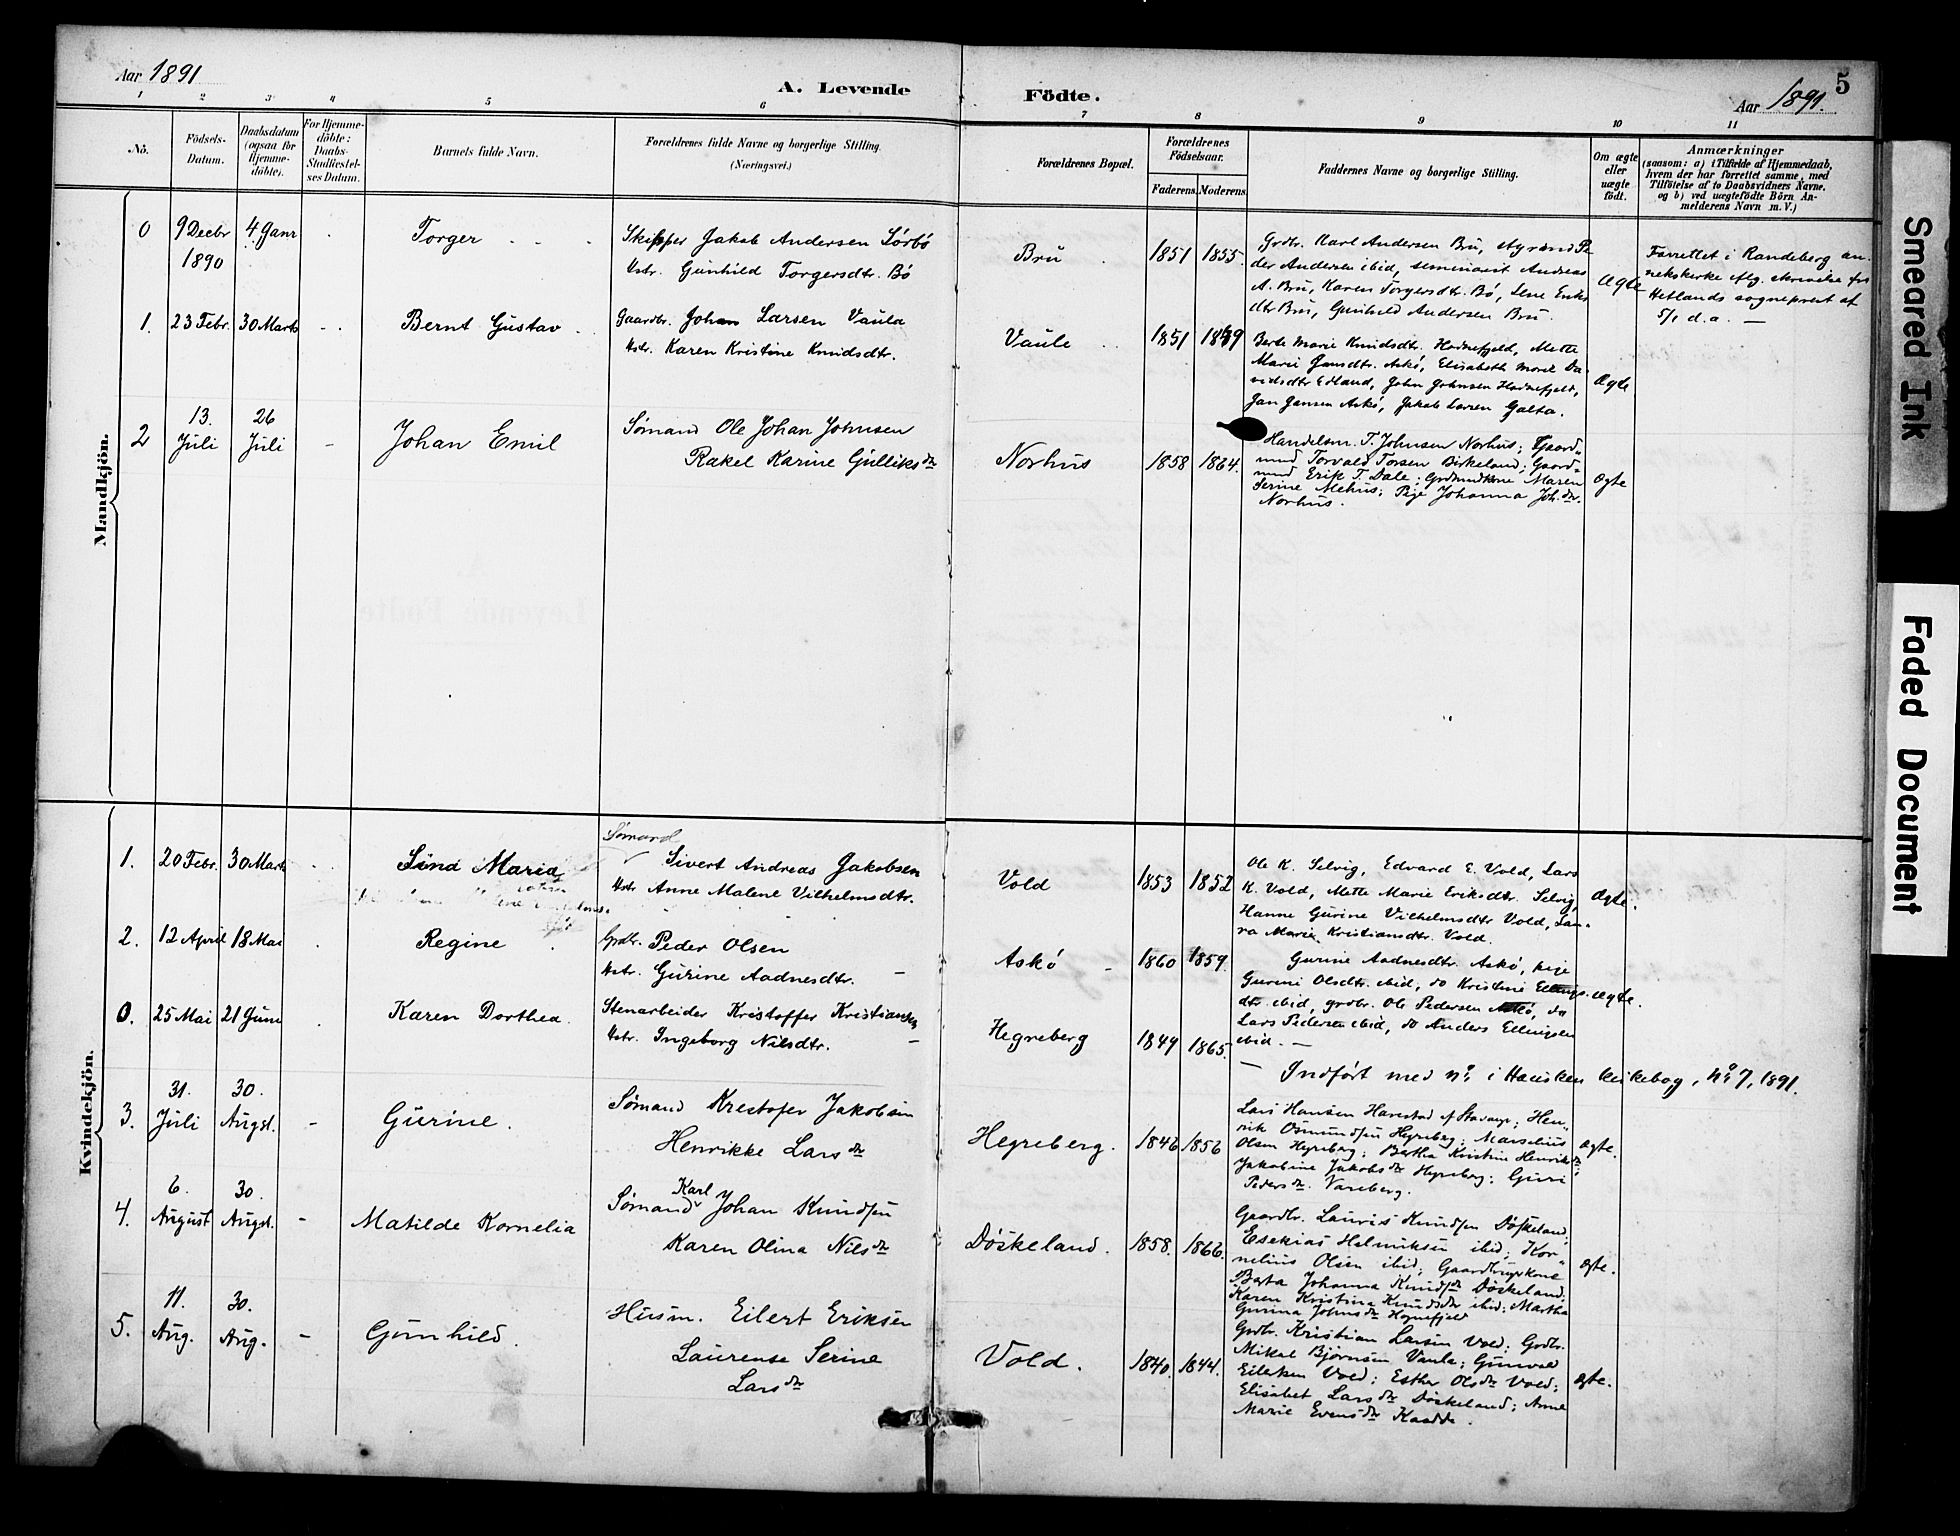 Aar 1891
A. Levende Födte.
Aar 1891.
5
1 2 3 4 5 6 7 8 9 10 11
No.
Födsels-Datum.
Daabsdatum (ogsaa for Hjemme-döbte).
For Hjemme-döbte: Daabs-Stadfæstel-ses Datum.
Barnets fulde Navn.
Forældrenes fulde Navne og borgerlige Stilling.
(Næringsvei.)
Forældrenes Bopæl.
Forældrenes Födselsaar.
Faderens. Moderens.
Faddernes Navne og borgerlige Stilling.
Om ægte eller uægte födt.
Anmærkninger
(saasom: a) i Tilfælde af Hjemmedaab,
hvem der har forrettet samme, med
Tilföielse af to Daabsvidners Navne,
og b) ved uægtefödte Börn An-
melderens Navn m. V.)
Mandkjön.
0 9 Decbr 1890 4 Janr
Torger
Skipper Jakob Andersen Sörbö
Hstr. Gunhild Torgersdtr. Bö
Bru 1851 1855.
Grdbr. Karl Andersen Bru, styrmd Pe-
der Andersen ibid, seminarist Andreas
A. Bru, Karen Torgersdtr. Bö, Lene Eriks
dtr Bru, Gunhild Andersen Bru.
Ægte
Forrettet i Randeberg an-
nekskirke iflg. skrivelse fra
Hetlands sogneprest af
5/1 d.a. —
1. 23 Febr. 30 Marts
Bernt Gustav
Gaardbr. Johan Larsen Vaula
Hstr. Karen Kristine Knudsdtr.
Vaule 1851 1849
Berte Marie Knudsdtr. Hodnefjeld, Mette
Marie Jansdtr. Askö, Elisabeth Marie Da-
vidsdtr Edland, John Johnsen Hodnefjeld,
Jan Jansen Askö, Jakob Larsen Galta.
Ægte
2 13. Juli 26 Juli -
Johan Emil
Sömand Ole Johan Johnsen
Rakel Karine Gulliksdr
Norhus 1858 1864.
Handelsm. T. Johnsen Norhus; Gaard-
md Torvald Torsen Birkeland; Gaard-
md Erik T. Dale; Grdmdkone Maren
Serine Mehus; Pige Johanna Joh.dr
Norhus.
Ægte
Kvindekjön.
1. 20 Febr. 30 Marts
Sina Maria
Sömand
Sivert Andreas Jakobsen
Hstr Anne Malene Vilhelmsdtr.
Vold 1853 1852
Ole K. Selvig, Edvard E. Vold, Lars
K. Vold, Mette Marie Eriksdtr. Selvig,
Hanne Gurine Vilhelmsdtr Vold, Lau-
ra Marie Kristiansdtr. Vold.
Ægte.
2. 12 April 18 Mai
Regine
Grdbr. Peder Olsen
Hstr. Gurine Aadnesdtr.
Askö 1860 1859.
Gurine Aadnesdtr. Askö, pige
Gurine Olsdtr. ibid, do Kristine Ellings-
dtr. ibid, grdbr. Ole Pedersen Askö, do
Lars Pedersen ibid, do Anders Ellingsen
ibid. —
ægte.
0. 25 Mai 21 Juni
Karen Dorthea.
Stenarbeider Kristoffer Kristiansen
Hstr. Ingeborg Nilsdtr.
Hegreberg 1849 1865.
— Indført med No i Hausken kirkebog, No 7, 1891.
3. 31. Juli 30. Augst. -
Gurine.
Sömand Krestofer Jakobsen
Henrikke Larsdr
Hegreberg. 1846 1856
Lars Hansen Harestad af Stavanger; Hen-
rik Osmundsen Hegreberg; Marselius
Olsen Hegreberg; Bertha Kristine Henriksdr;
Jakobine Jakobsdr Hegreberg; Guri
Pedersdr. Vareberg.
ægte.
4. 6. August 30. Augst. -
Matilde Kornelia
Sömand Karl Johan Knudsen
Karen Olina Nilsdr
Döskeland. 1858. 1866.
Gaardbr. Lauris Knudsen Döskeland;
Esekias Helmiksen ibid; Kor-
nelius Olsen ibid; Gaardbrugerkone
Berta Johanna Knudsdr Döskeland;
Karen Kristina Knudsdr ibid; Martha
Gurina Johnsdr Hognefjeld
ægte.
5. 11. Aug. 30. Aug. -
Gunhild.
Husm. Eilert Eriksen
Laurense Serine
Larsdr
Vold. 1840. 1844.
Grdbr. Kristian Larsen Vold; Grdbr.
Mikal Bjørnsen Vaula; Gunvald
Eilertsen Vold; Esther Olsdr Vold;
Elisabet Larsdr Döskeland; Anne
Marie Evensdr Kaada.
ægte.
Smeared Ink
Faded Document